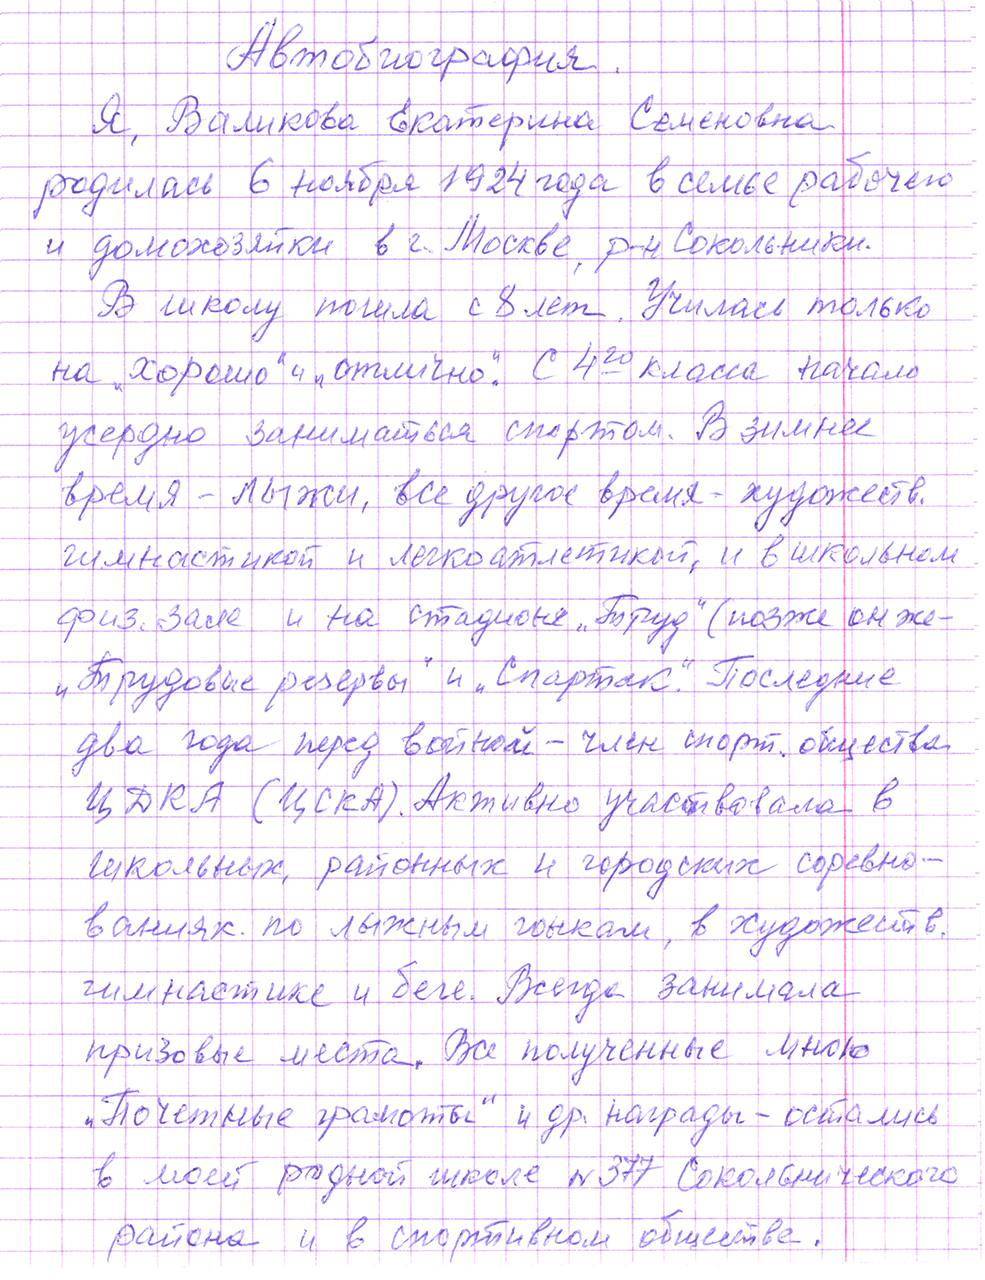 Автобиография.
Я, Валикова Екатерина Семеновна
родилась 6 ноября 1924 года в семье рабочего
и домохозяйки в г. Москве, р-н Сокольники.
В школу пошла с 8 лет. Училась только
на „хорошо“ и „отлично“. С 4го класса начала
усердно заниматься спортом. В зимнее
время – лыжи, все другое время – художеств.
гимнастикой и легкоатлетикой, и в школьном
физ. зале и на стадионе „Труд“ (позже он же –
„Трудовые резервы“ и „Спартак“. Последние
два года перед войной – член спорт. общества
ЦДКА (ЦСКА). Активно участвовала в
школьных, районных и городских соревно-
ваниях по лыжным гонкам, в художеств.
гимнастике и беге. Всегда занимала
призовые места. Все полученные мною
„Почетные грамоты“ и др. награды – остались
в моей родной школе №377 Сокольнического
района и в спортивном обществе.